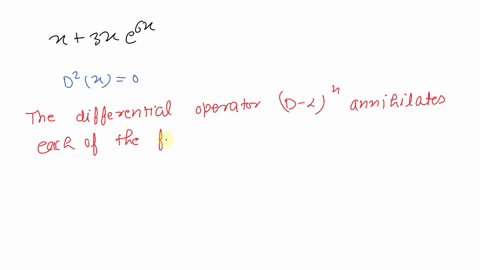 x + 3x e^6x
D²(x) = 0
The differential operator (D-α)^n annihilates
each of the f